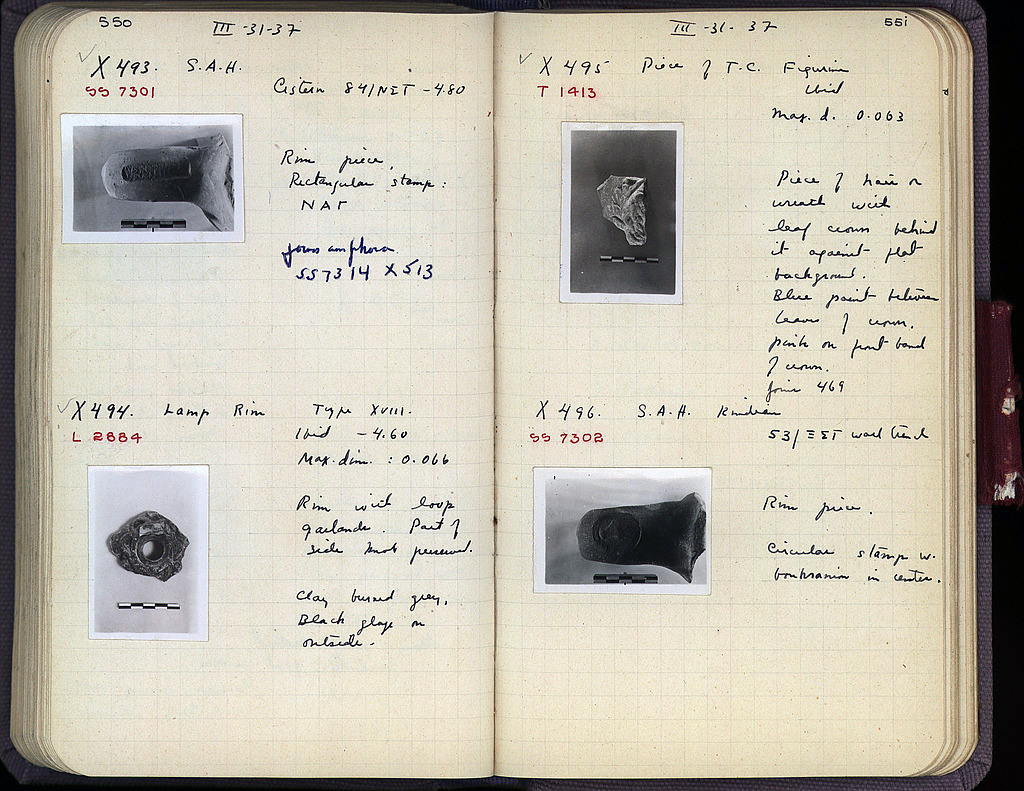 550
III -31-37
X 493. S.A.H.
SS 7301
Cistern 84/ΝΣΤ -4.80
Rim piece.
Rectangular stamp:
ΝΑΓ
joins amphora
SS7314 X513
X 494. Lamp Rim Type XVIII.
L 2884
Ibid -4.60
Max. dim. : 0.066
Rim with loop
garlands. Part of
side knob preserved.
Clay burned grey.
Black glaze on
outside.
551
III -31-37
X 495 Piece of T.C. Figurine
T 1413
Ibid
Max. d. 0.063
Piece of hair or
wreath with
leaf crown behind
it against flat
background.
Blue paint between
leaves of crown.
pink on front band
of crown.
Joins 469
X 496. S.A.H. Knidian
SS 7302
53/ΞΣΤ wall trench
Rim piece.
Circular stamp w.
boukranion in center.